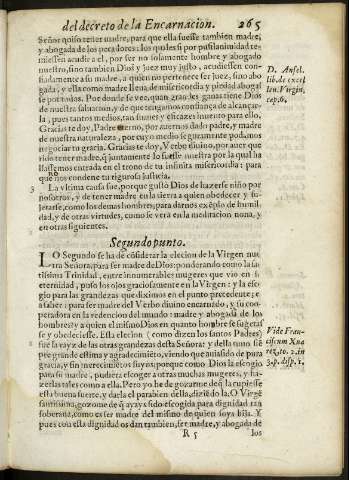 del decreto de la Encarnacion. 265
Señor quiso tener madre, para que ella fuesse tambien madre,
y abogada de los pecadores: los quales si por pusilanimidad te-
miessen acudir a el, por ser no solamente hombre y abogado
nuestro, sino tambien Dios y Iuez muy justo, acudiessen con-
fiadamente a su madre, a quien no pertenece ser juez, sino abo-
gada, y ella como madre llena de misericordia y piedad abogas-
se por todos. Por donde se vee, quan grandes ganas tiene Dios
de nuestra saluacion, y de que tengamos confiança de alcançar-
la, pues tantos medios, tan suaues y eficazes inuento para ello,
Gracias te doy, Padre eterno, por auernos dado padre, y madre
de nuestra naturaleza, por cuyo medio seguramente podamos
negociar tu gracia. Gracias te doy, Verbo diuino, por auer que
rido tener madre, q̃ juntamente lo fuesse nuestra por la qual ha
llassemos entrada en el trono de tu infinita misericordia: para
que nos condene tu rigurosa justicia.
no
3 La vltima causa fue, porque gustò Dios de hazerse niño por
nosotros, y de tener madre en la tierra a quien obedecer y su-
jetarse, como los demas hombres, para darnos exẽplo de humil-
dad, y de otras virtudes, como se verà en la meditacion nona, y
en otras siguientes.
Segundo punto.
1 LO Segundo se ha de cõsiderar la elecion de la Virgen nues
tra Señora, para ser madre de Dios: ponderando como la sã
tissima Trinidad, entre innumerables mugeres que vio en su
eternidad, puso los ojos graciosamente en la Virgen: y la esco-
gio para las grandezas que diximos en el punto precedente; es
a saber: para ser madre del Verbo diuino encarnado, y su coo-
peradora en la redencion del mundo: madre y abogada de los
hombres: y a quien el mismo Dios en quanto hombre se sugetas
se y obedeciesse. Esta elecion (como dizen los santos Padres)
fue la rayz de las otras grandezas desta Señora: y della tuuo siẽ
pre grande estima y agradecimiẽto, viendo que auia sido de pura
gracia, y sin merecimiẽtos suyos, porque como Dios la escogio
para su madre, pudiera escoger a otras muchas mugeres, y ha-
zerlas tales como a ella. Pero yo he de gozarme deq̃ la cupiesse
esta buena suerte, y darla el parabien della, diziẽdola. O Virgẽ
santissima, gozome de q̃ ayays sido escogida para dignidad tan
soberana, como es ser madre del mismo de quien soys hija. Y
pues con esta dignidad os dan tambien, ser madre, y abogada de
R 5 los
D. Ansel.
lib. de excel
len. Virgin,
cap. 6.
Vide Fran-
ciscum Xua
rez to. 2. in
3. p. disp. 1.